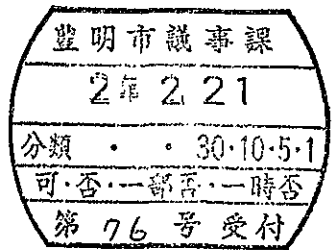 豊明市議事課
2年2.21
分類 ・ ・ 30・10・5・1
可・否・一部否・一時否
第 76 号 受付